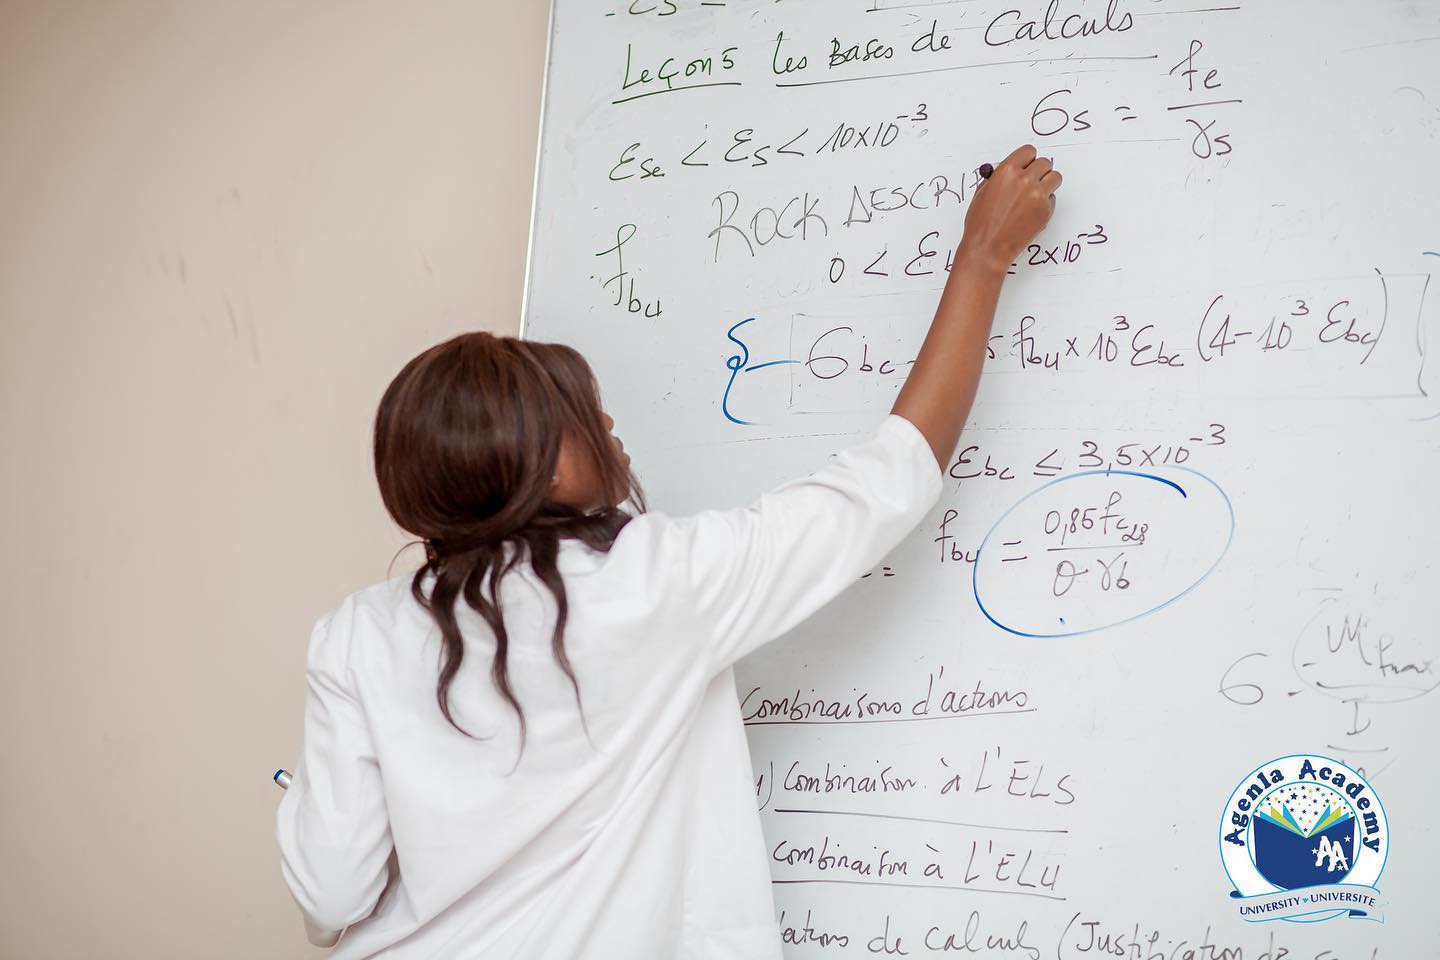 Leçon 5 les Bases de Calculs
σs = fe / γs
εse < εs < 10×10⁻³
ROCK DESCRI
fbu
0 < εb 2×10⁻³
σbc fbu × 10³ εbc (4 - 10³ εbc)
εbc ≤ 3,5×10⁻³
fbu = 0,85 fc28 / θ γb
Combinaisons d'actions
1) Combinaison à L'ELS
combinaison à L'ELU
de calculs (Justification de
Agenla Academy
AA
UNIVERSITY UNIVERSITE